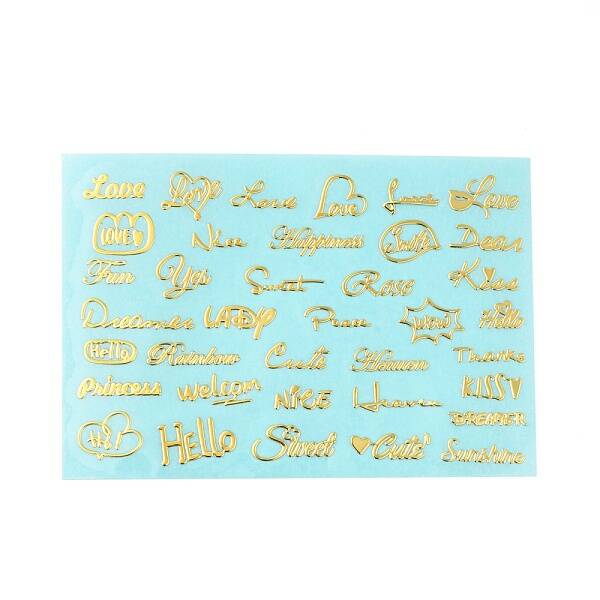 Love Love Love Love Love
LOVE Nice Happiness Smile Dear
Fun Yes Sweet Rose Kiss
Dreamer LADY Peace WOW Hello
Hello Rainbow Cute Heaven Thanks
Princess Welcom NiCE Heaven KISS
DREAMER
Hi! HELLO Sweet Cute Sunshine